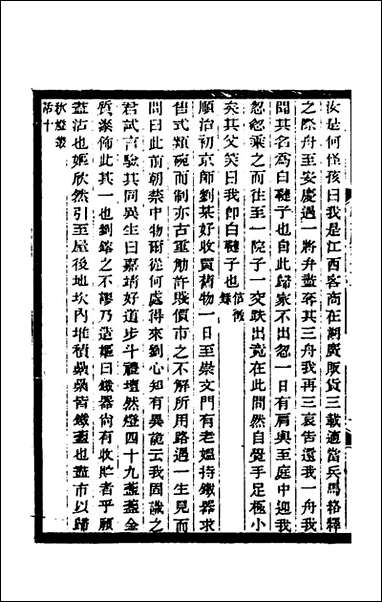 汝是何怪孩曰我是江西客商在湖廣販貨三載適當兵馬格釋
之際舟至安慶遇一將弁盡奪其三舟我再三哀吿還我一舟我
問其名爲白鞬子也自此歸家不出忽一日有肩輿至庭中迎我
忽忽乘之而往至一院子一交跌出竟在此間然自覺手足極小
矣其父笑曰我卽白鞬子也
順治初京師劉某好收買舊物一日至崇文門有老嫗持鐵器求
售式類碗而制亦古重觔許賤價市之不解所用路遇一生見而
問曰此前朝祭中物爾從何處得來劉心知有異詭云我固識之
君試言驗其同異生曰嘉靖好道步斗禮壇然燈四十九盞盞金
質藥佈此其一也劉鎔之不謬乃造嫗曰鐵器尙有收貯者乎願
盡沽也嫗欣然引至屋後地坎內堆積纍纍皆鐵盞也盡市以歸
秋燈叢
話十